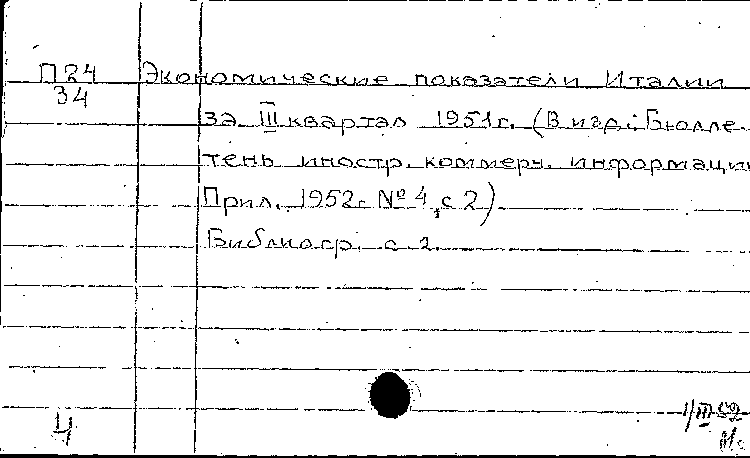 П24 Экономические показатели Италии
34
за III квартал 1951г. (В изд.: Бюлле-
тень иностр. коммерч. информации
Прил. 1952г. № 4, с 2)
Библиогр. с 2.
4
1/III 52